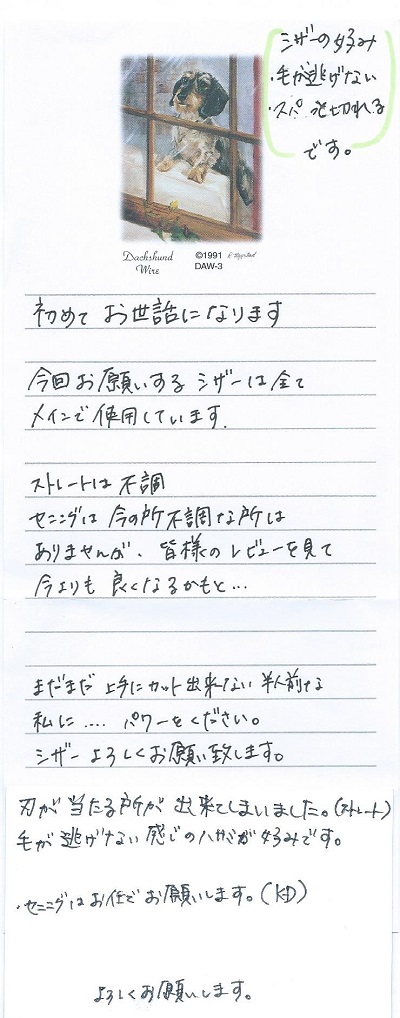 シザーの好み
・毛が逃げない
・スパっと切れる
です。
Dachshund
Wire
©1991
DAW-3
初めて お世話になります
今回お願いする シザーは全て
メインで使用しています.
ストレートは 不調
セニングは 今の所不調な所は
ありませんが、皆様のレビューを見て
今よりも 良くなるかもと…
まだまだ 上手にカット出来ない 半人前な
私に .... パワーをください。
シザー よろしくお願い致します。
刃が当たる所が 出来てしまいました。(ストレート)
毛が逃げない感じのハサミが好みです。
・セニングはお任でお願いします。(KD)
よろしくお願いします。